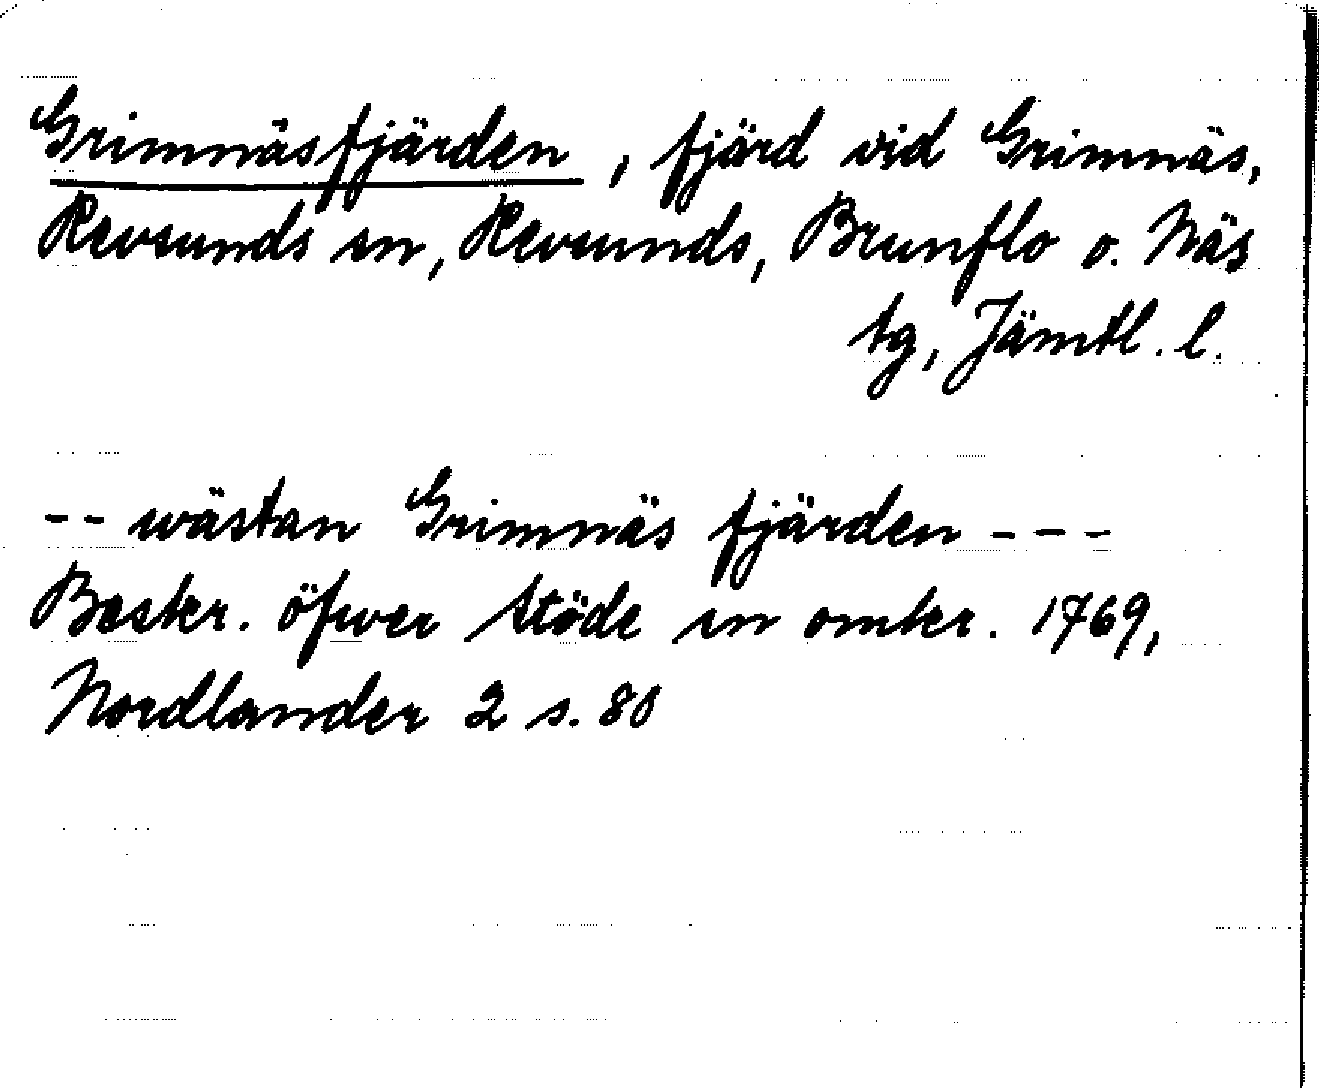 Grimnäsfjärden, fjärd vid Grimnäs,
Revsunds sn, Revsunds, Brunflo o. Näs
tg, Jämtl. l.
-- wästan Grimnäs fjärden ---
Beskr. öfwer Stöde sn omkr. 1769,
Nordlander 2 s. 80